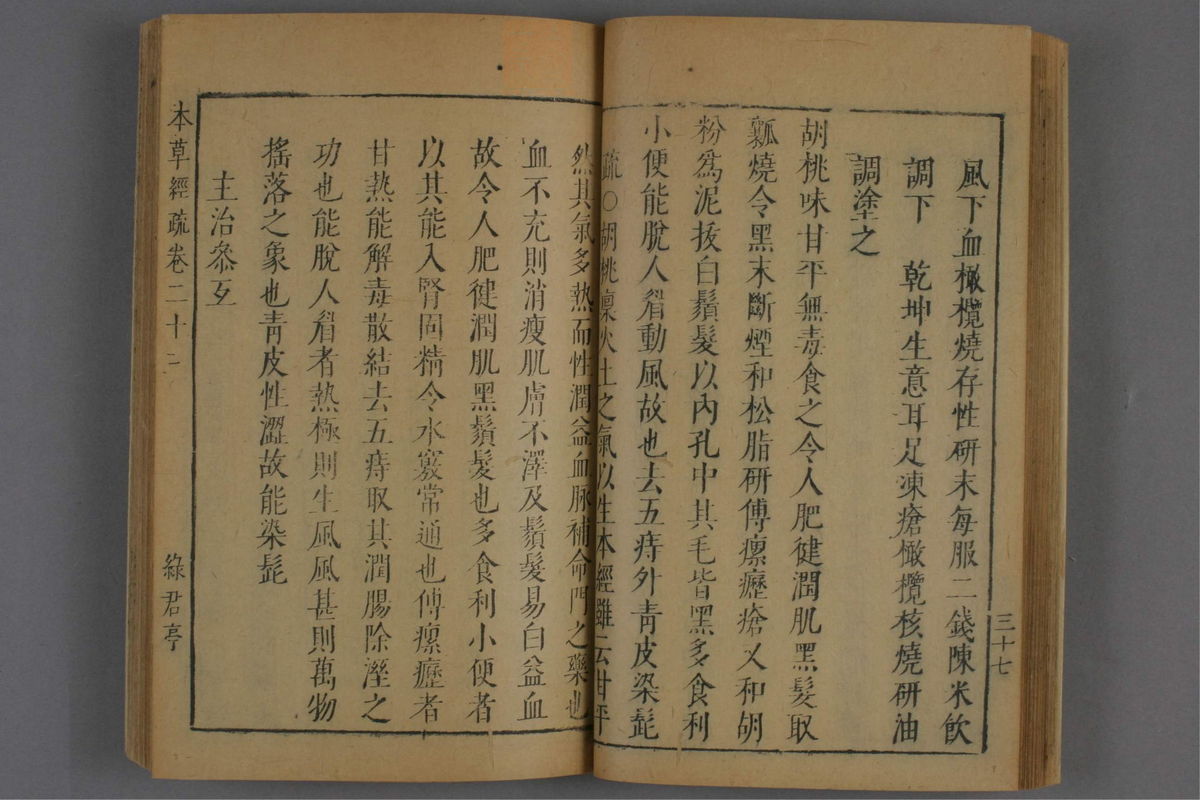 風下血橄欖燒存性研末每服二錢陳米飲
調下　乾坤生意耳足凍瘡橄欖核燒研油
調塗之
胡桃味甘平無毒食之令人肥健潤肌黑髮取
瓤燒令黑末斷煙和松脂研傅瘰癧瘡又和胡
粉爲泥拔白鬚髮以內孔中其毛皆黑多食利
小便能脫人眉動風故也去五痔外青皮染髭
疏〇胡桃稟火土之氣以生本經雖云甘平
然其氣多熱而性潤益血脉補命門之藥也
血不充則消瘦肌膚不澤及鬚髮易白益血
故令人肥健潤肌黑鬚髮也多食利小便者
以其能入腎固精令水竅常通也傅瘰癧者
甘熱能解毒散結去五痔取其潤腸除溼之
功也能脫人眉者熱極則生風風甚則萬物
搖落之象也青皮性澀故能染髭
主治叅互
三十七
本草經疏卷二十
綠君亭